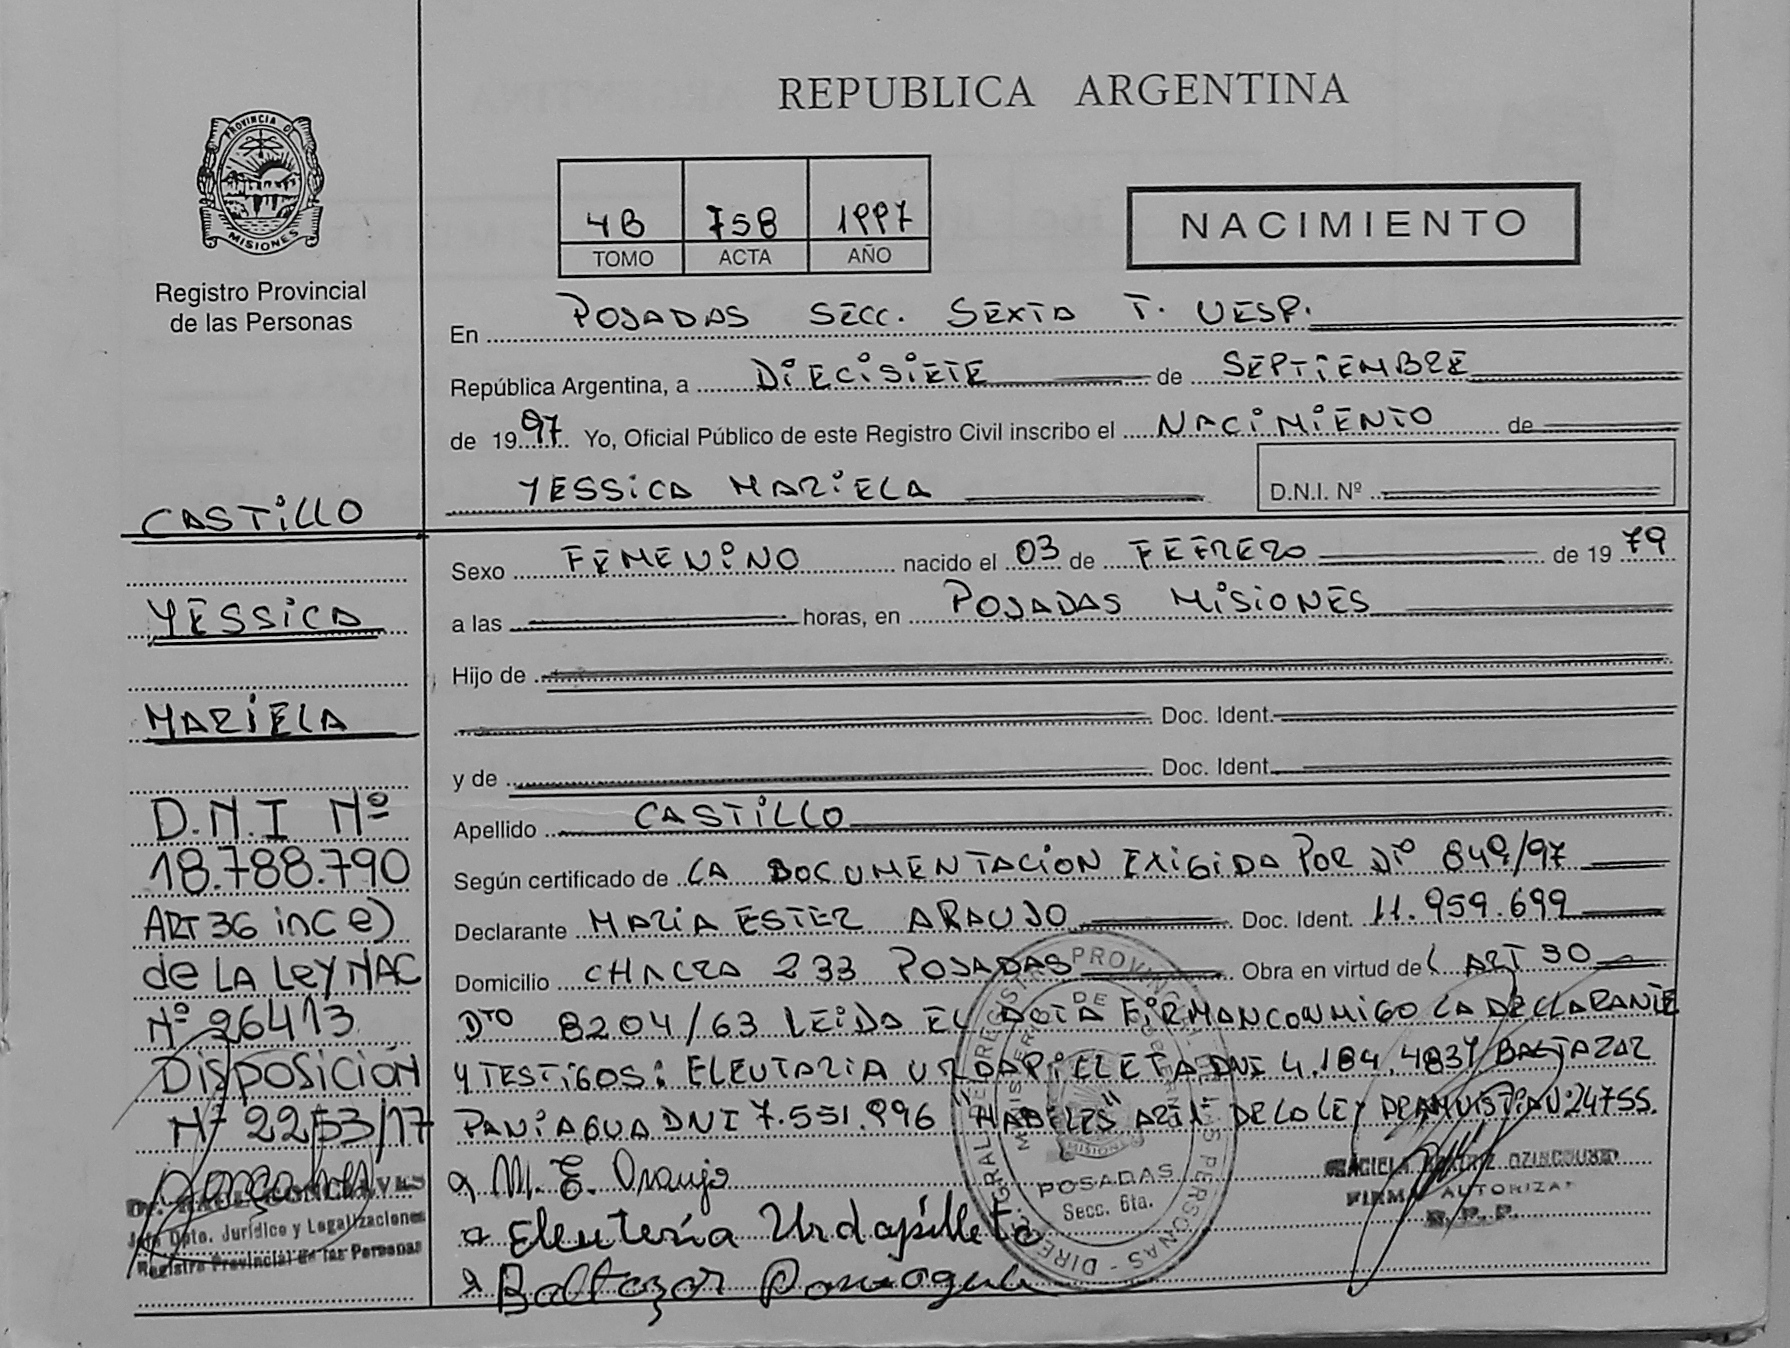 REPUBLICA ARGENTINA
PROVINCIA DE
MISIONES
Registro Provincial
de las Personas
4B 758 1997
TOMO ACTA AÑO
NACIMIENTO
En POSADAS SECC. SEXTA T. VESP.
República Argentina, a DIECISIETE de SEPTIEMBRE
de 1997 Yo, Oficial Público de este Registro Civil inscribo el NACIMIENTO de
YESSICA MARIELA D.N.I. Nº
CASTILLO
YESSICA
MARIELA
D.N.I Nº
18.788.790
ART 36 inc e)
de LA Ley NAC
Nº 26413
Disposición
Nº 2253/17
Jefe Dpto. Jurídico y Legalizaciones
Registro Provincial de las Personas
Sexo FEMENINO nacido el 03 de FEFRERO de 1979
a las horas, en POSADAS MISIONES
Hijo de
Doc. Ident.
y de Doc. Ident.
Apellido CASTILLO
Según certificado de LA DOCUMENTACION EXIGIDA POR Dto 849/97
Declarante MARIA ESTER ARAUJO Doc. Ident. 11.959.699
Domicilio CHACRA 233 POSADAS Obra en virtud del ART 30
Dto 8204/63 LEIDA EL ACTA FIRMAN CONMIGO LA DECLARANTE
Y TESTIGOS: ELEUTARIA URDAPILLETA DNI 4.184.483 Y BALTAZAR
PANIAGUA DNI 7.551.996 "HABILES" DE LA LEY DE AMNISTIA Nº 24755.
M. E. Araujo
Eleuteria Urdapilleta
Baltazar Paniagua
POSADAS
Secc. 6ta.
FIRMA AUTORIZA
R. P. P.